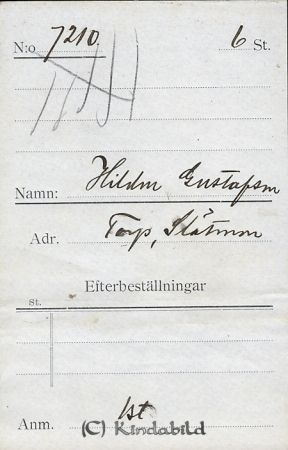 N:o 7210. 6 St.
Namn: Hildur Gustafson
Adr. Torp, Slätmon
Efterbeställningar
St.
Anm. 1st
(C) Kindabild